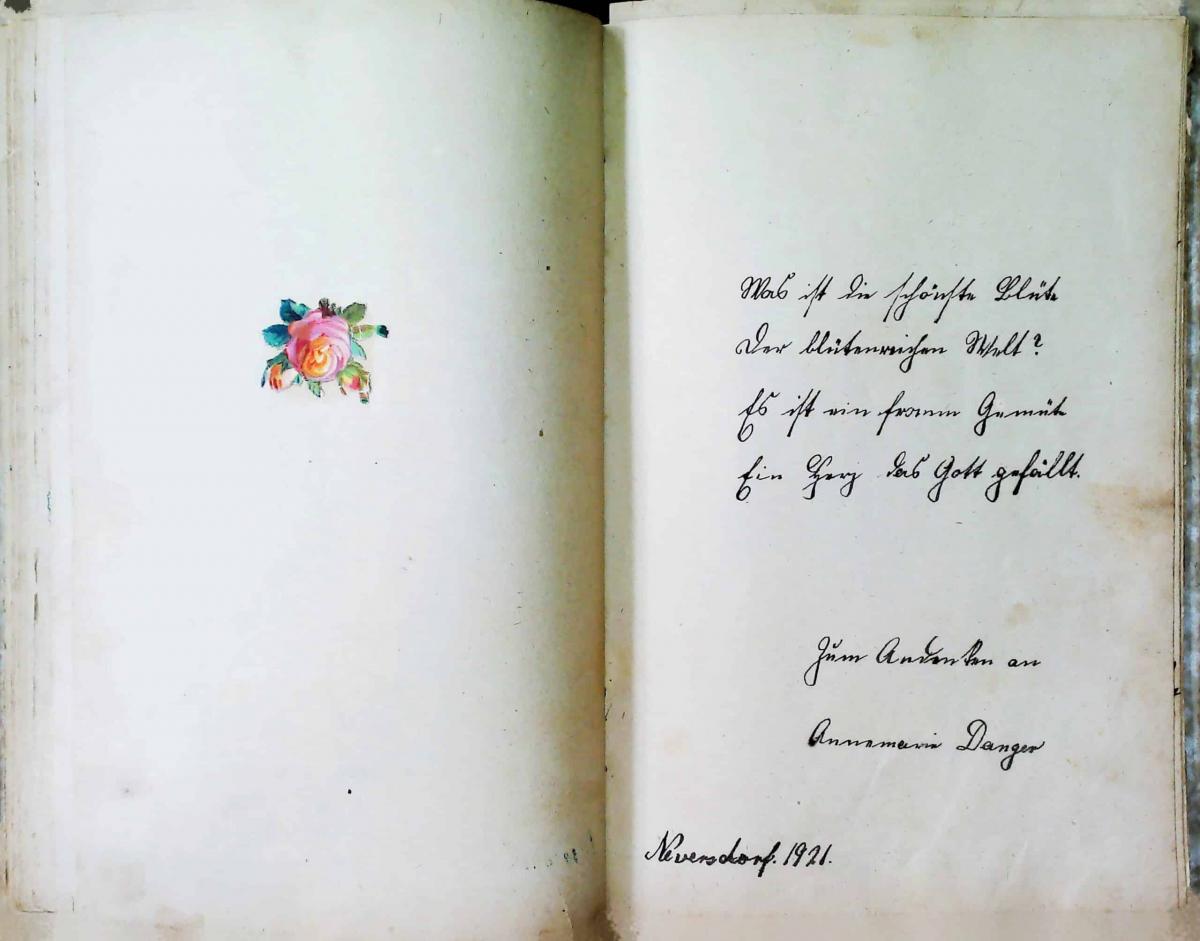 Was ist die schönste Blüte
Der blütenreichen Welt?
Es ist ein fromm Gemüte
Ein Herz das Gott gefällt.
Zum Andenken an
Annemarie Danger
Neversdorf. 1921.